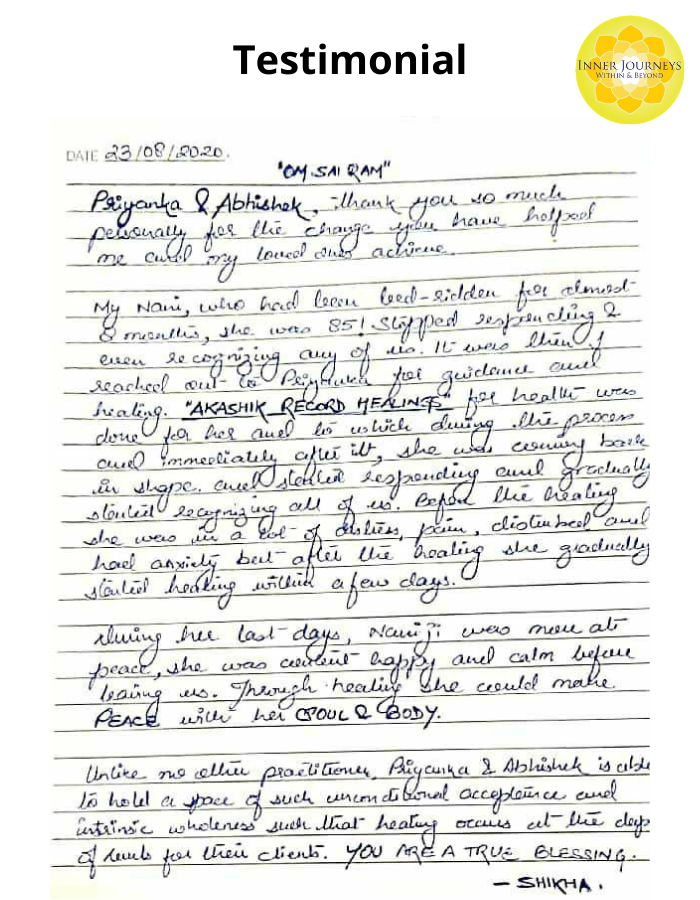 Testimonial
INNER JOURNEYS
WITHIN & BEYOND
DATE 23/08/2020.
"OM SAI RAM"
Priyanka & Abhishek, thank you so much
personally for the change you have helped
me and my loved ones achieve.
My Nani, who had been bed-ridden for almost
8 months, she was 85! Stopped responding &
even recognizing any of us. It was then I
reached out to Priyanka for guidance and
healing. "AKASHIK RECORD HEALINGS" for health was
done for her and to which during the process
and immediately after it, she was coming back
in shape and started responding and gradually
started recognizing all of us. Before the healing
she was in a lot of distress, pain, disturbed and
had anxiety but after the healing she gradually
started healing within a few days.
During her last days, Naniji was more at
peace, she was content happy and calm before
leaving us. Through healing she could make
PEACE with her SOUL & BODY.
Unlike no other practitioner, Priyanka & Abhishek is able
to hold a space of such unconditional acceptance and
intrinsic wholeness such that healing occurs at the deep
of levels for their clients. YOU ARE A TRUE BLESSING.
- SHIKHA.